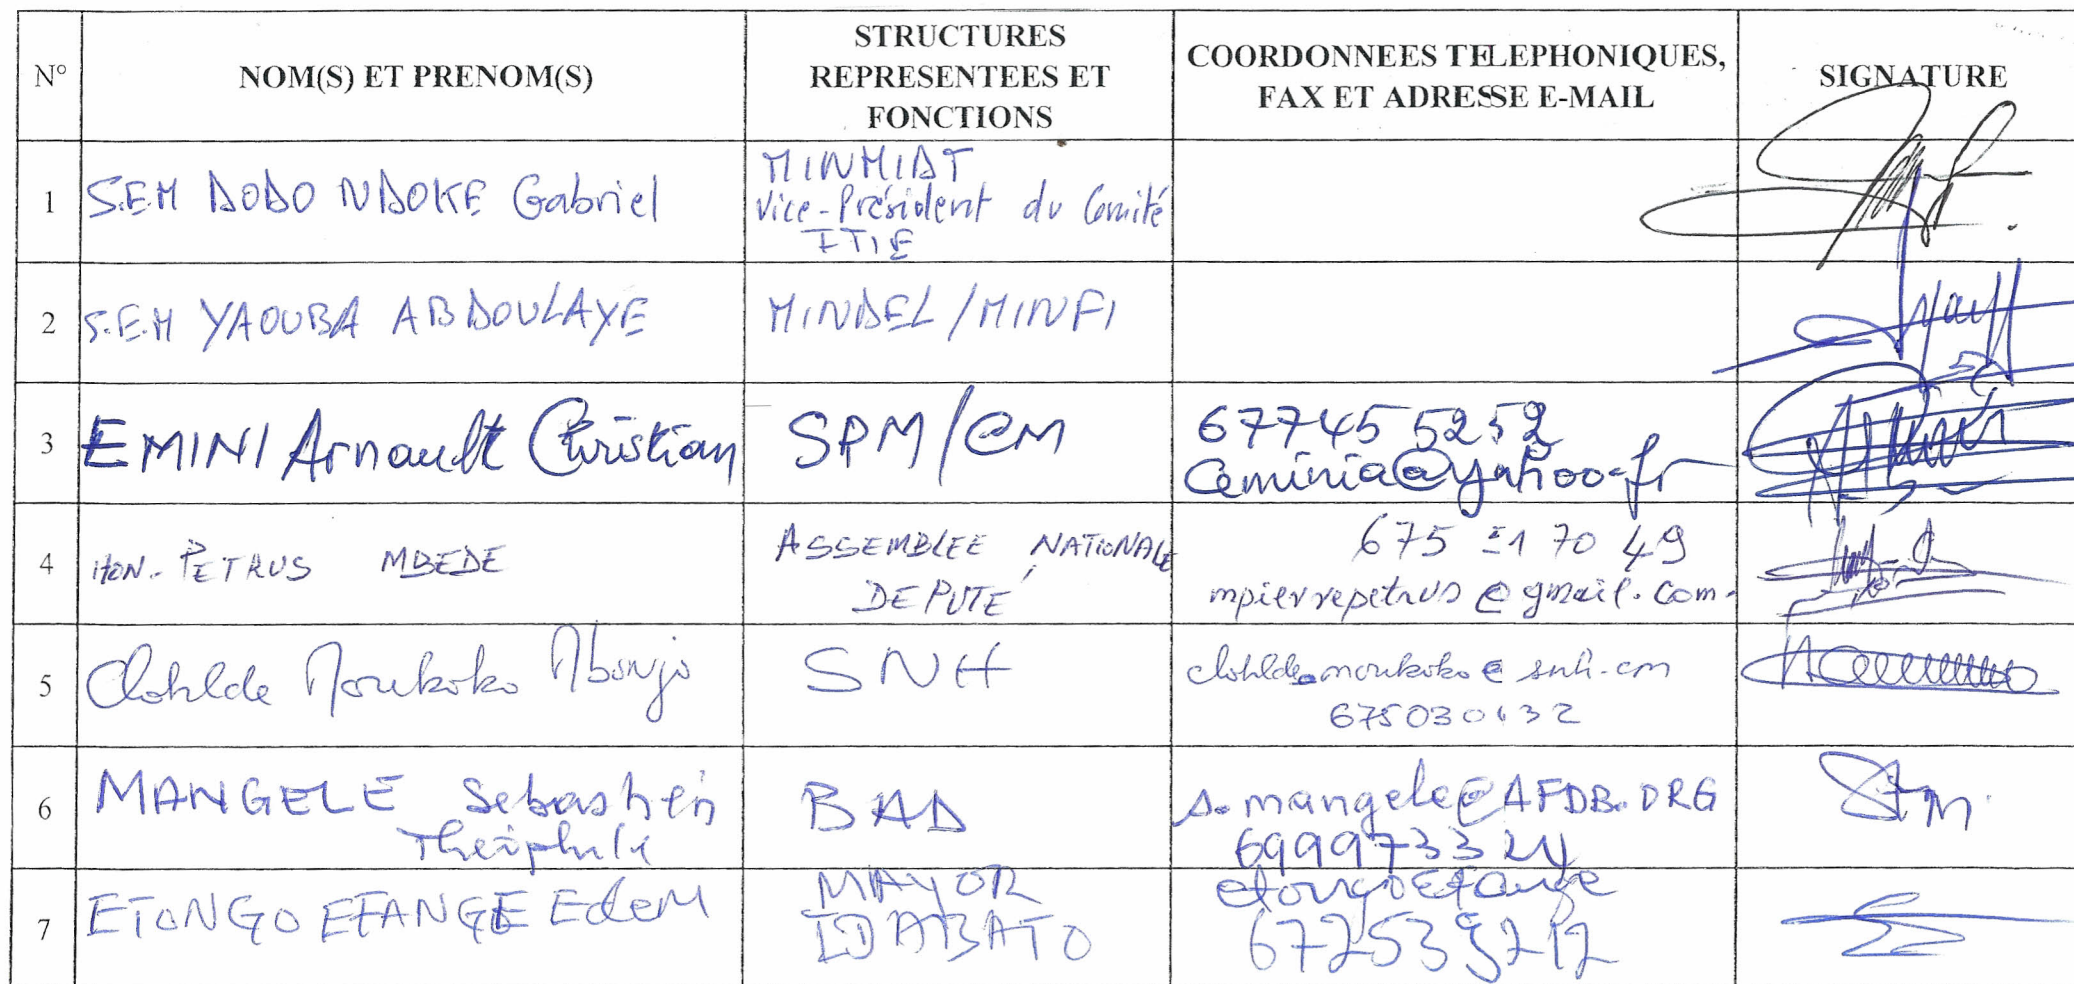 N°
NOM(S) ET PRENOM(S)
STRUCTURES
REPRESENTEES ET
FONCTIONS
COORDONNEES TELEPHONIQUES,
FAX ET ADRESSE E-MAIL
SIGNATURE
1
S.E.M DODO NDOKE Gabriel
MINMIDT
Vice-Président du Comité
ITIE
2
S.E.M YAOUBA ABDOULAYE
MINDEL/MINFI
3
EMINI Arnault Christian
SPM/CM
677455252
Ceminia@yahoo.fr
4
HON. PETRUS MBEDE
ASSEMBLEE NATIONALE
DEPUTE
675 51 70 49
mpierrepetrus@gmail.com.
5
Clotilde Moukoko Mbonjo
SNH
clotilde.moukoko@snh.cm
675030132
6
MANGELE Sebastien
Théophile
BAD
s.mangele@AFDB.ORG
699973324
7
ETONGO EFANGE Edem
MAYOR
IDABATO
etongoefange
672539212